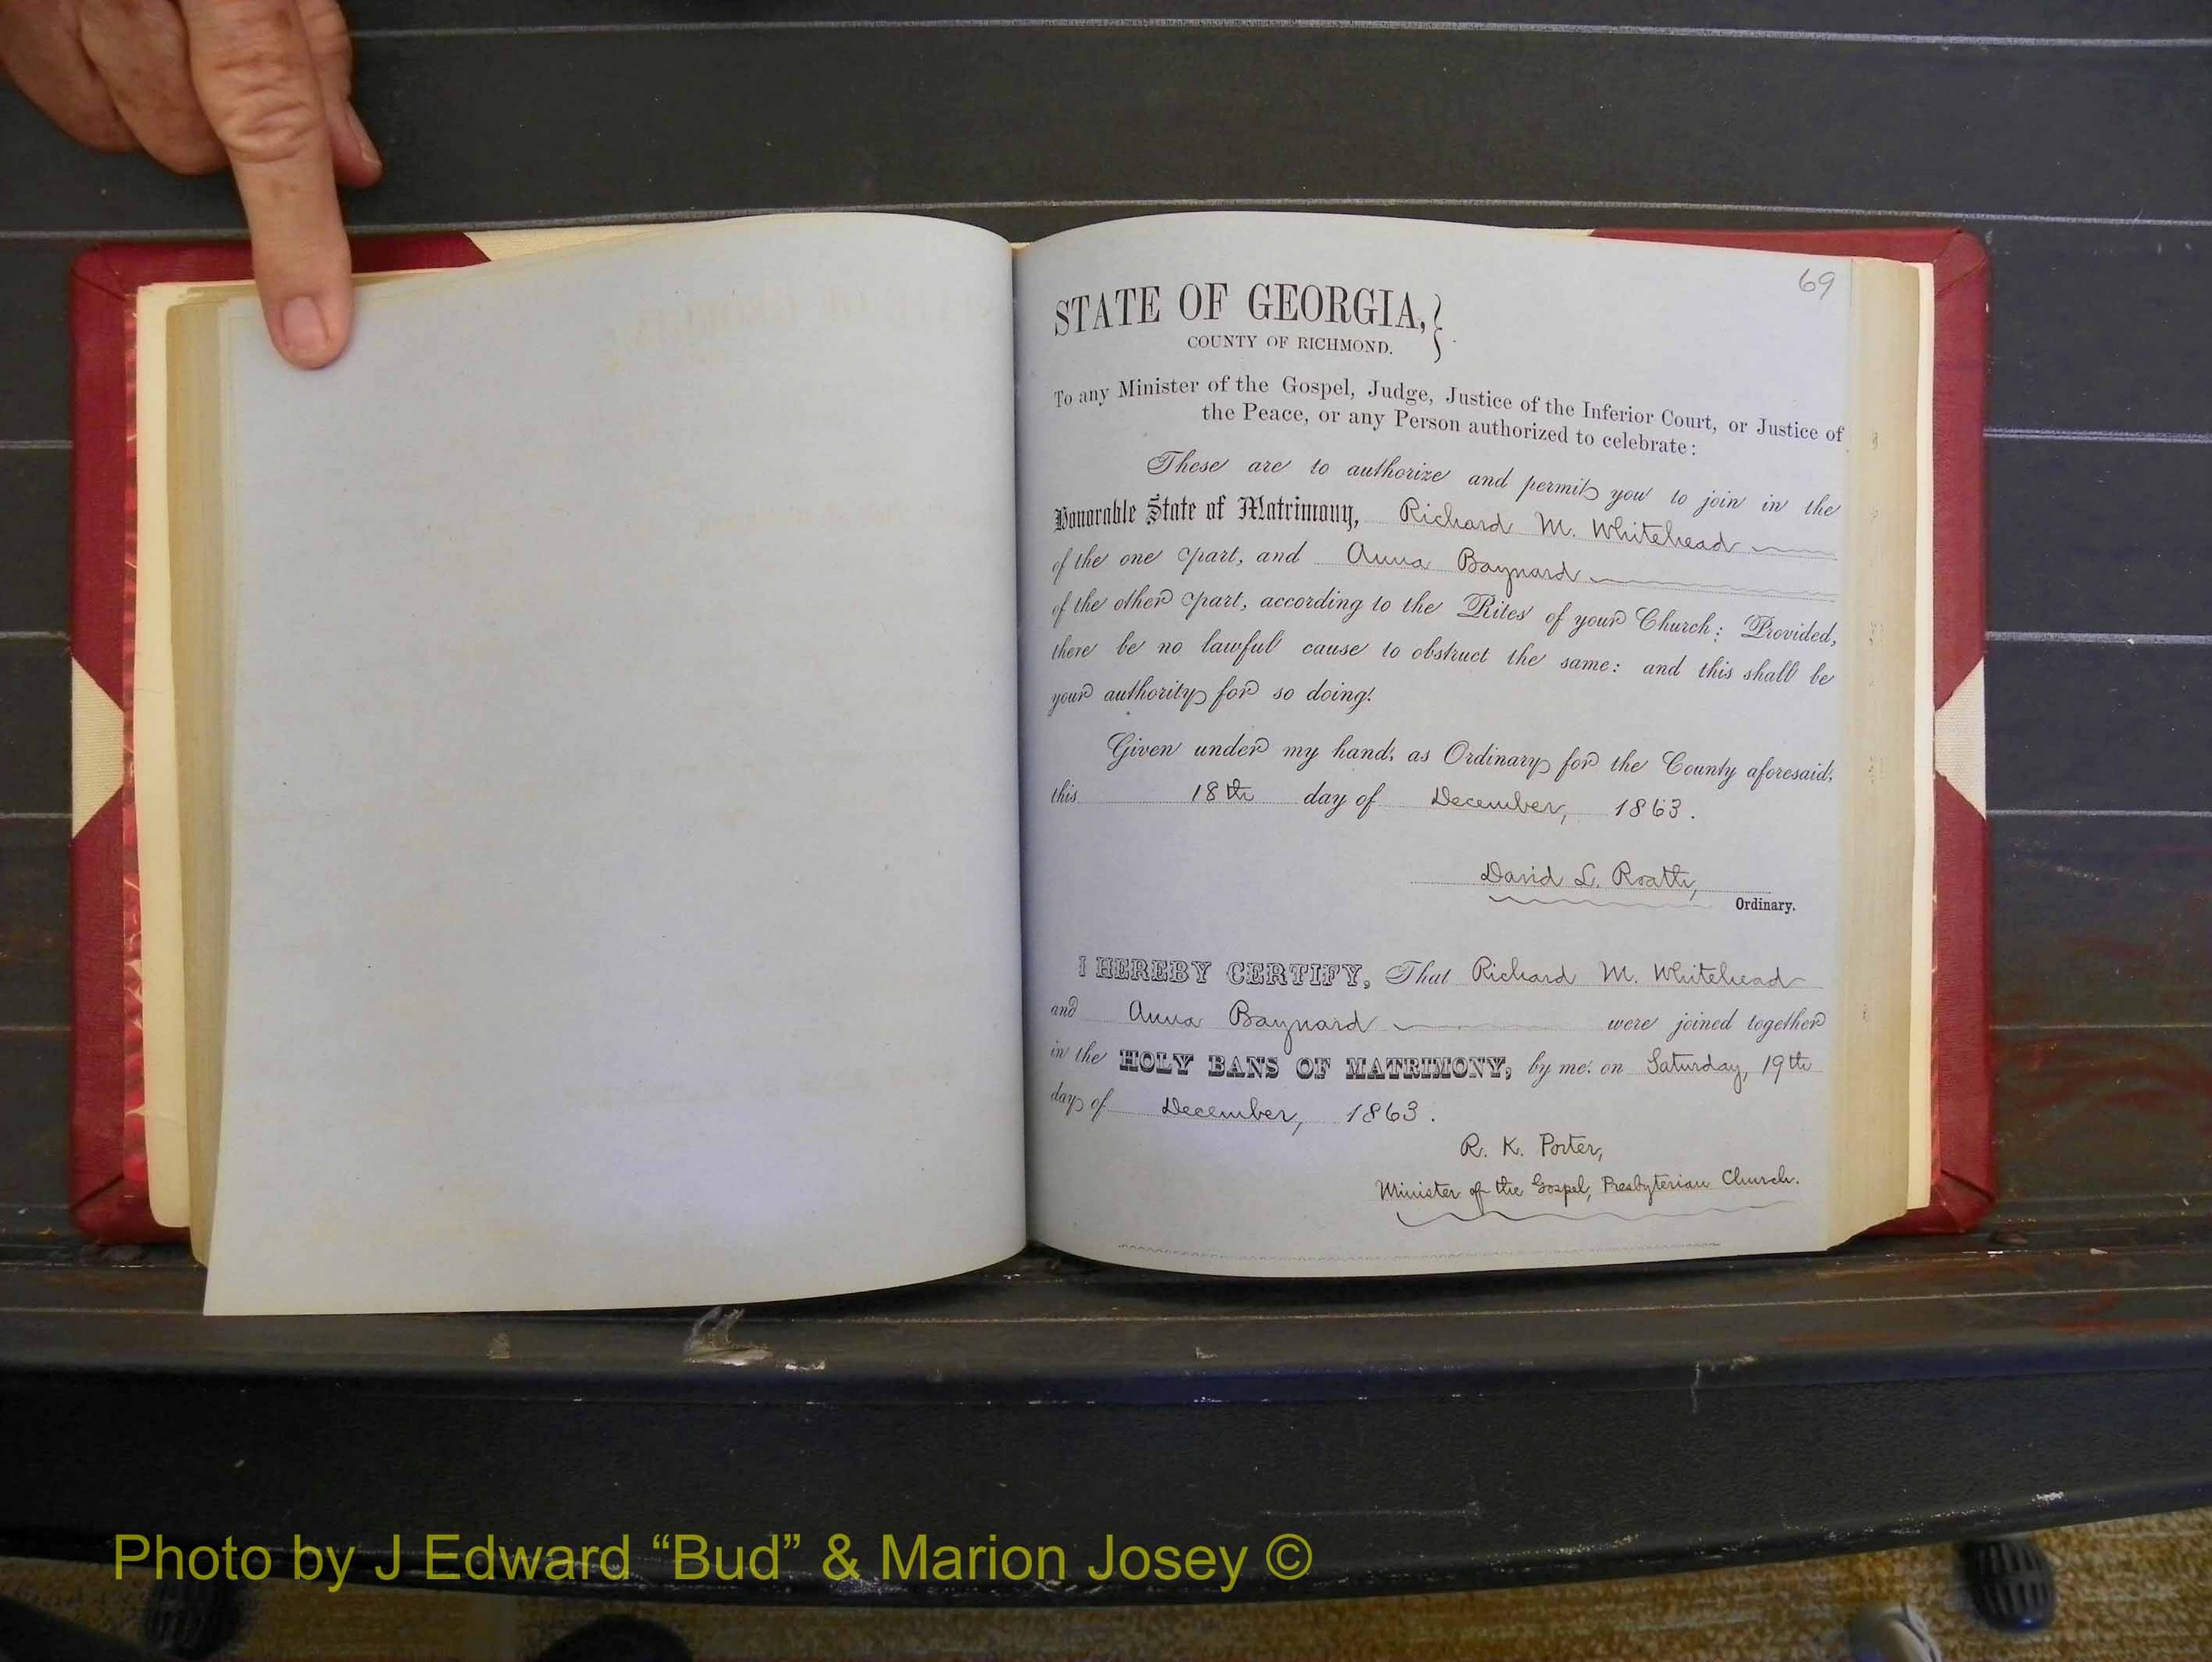 69
STATE OF GEORGIA,}
COUNTY OF RICHMOND.
To any Minister of the Gospel, Judge, Justice of the Inferior Court, or Justice of
the Peace, or any Person authorized to celebrate:
These are to authorize and permit you to join in the
Honorable State of Matrimony, Richard M. Whitehead
of the one part, and Anna Baynard
of the other part, according to the Rites of your Church; Provided,
there be no lawful cause to obstruct the same: and this shall be
your authority for so doing.
Given under my hand, as Ordinary for the County aforesaid,
this 18th day of December, 1863.
David L. Roath,
Ordinary.
I HEREBY CERTIFY, That Richard M. Whitehead
and Anna Baynard were joined together
in the HOLY BANS OF MATRIMONY, by me, on Saturday, 19th
day of December, 1863.
R. K. Porter,
Minister of the Gospel, Presbyterian Church.
Photo by J Edward “Bud” & Marion Josey ©